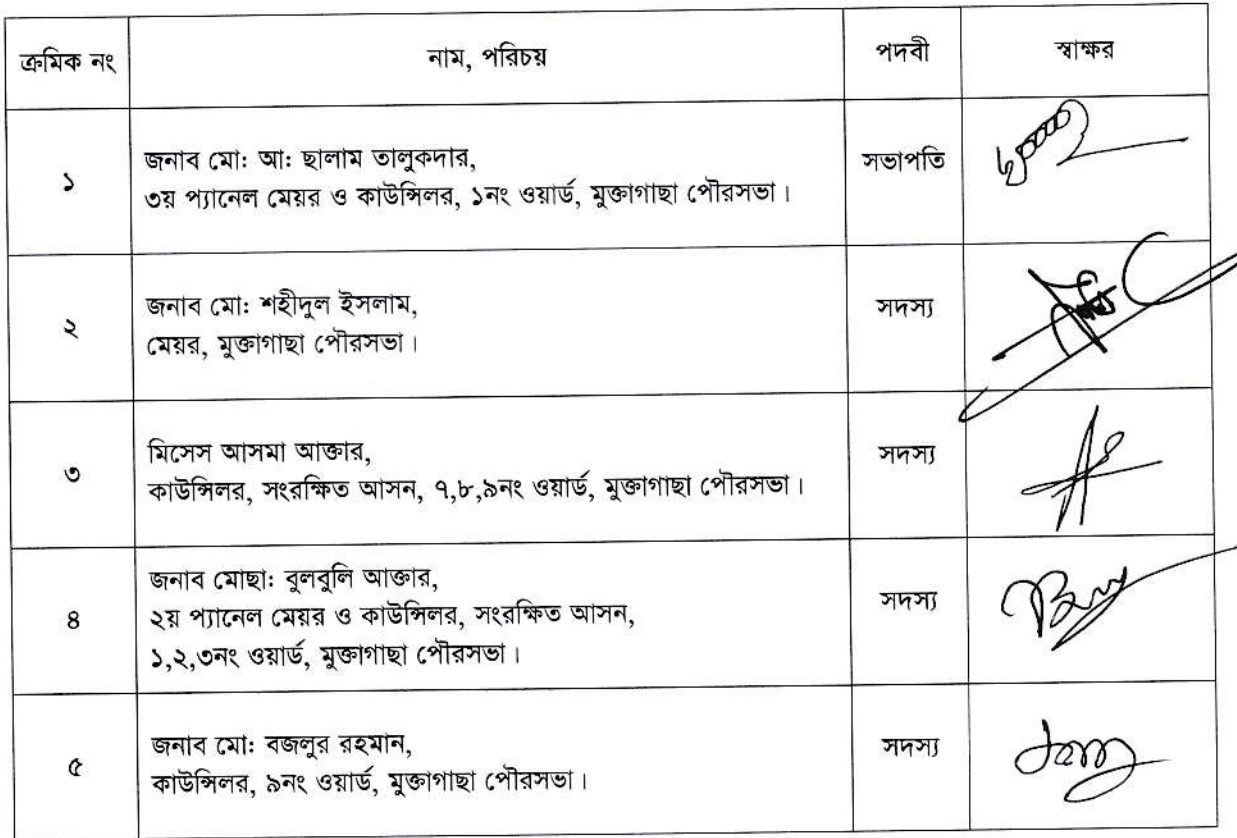 ক্রমিক নং নাম, পরিচয় পদবী স্বাক্ষর
১ জনাব মো: আ: ছালাম তালুকদার, সভাপতি
৩য় প্যানেল মেয়র ও কাউন্সিলর, ১নং ওয়ার্ড, মুক্তাগাছা পৌরসভা।
২ জনাব মো: শহীদুল ইসলাম, সদস্য
মেয়র, মুক্তাগাছা পৌরসভা।
৩ মিসেস আসমা আক্তার, সদস্য
কাউন্সিলর, সংরক্ষিত আসন, ৭,৮,৯নং ওয়ার্ড, মুক্তাগাছা পৌরসভা।
৪ জনাব মোছা: বুলবুলি আক্তার, সদস্য
২য় প্যানেল মেয়র ও কাউন্সিলর, সংরক্ষিত আসন,
১,২,৩নং ওয়ার্ড, মুক্তাগাছা পৌরসভা।
৫ জনাব মো: বজলুর রহমান, সদস্য
কাউন্সিলর, ৯নং ওয়ার্ড, মুক্তাগাছা পৌরসভা।